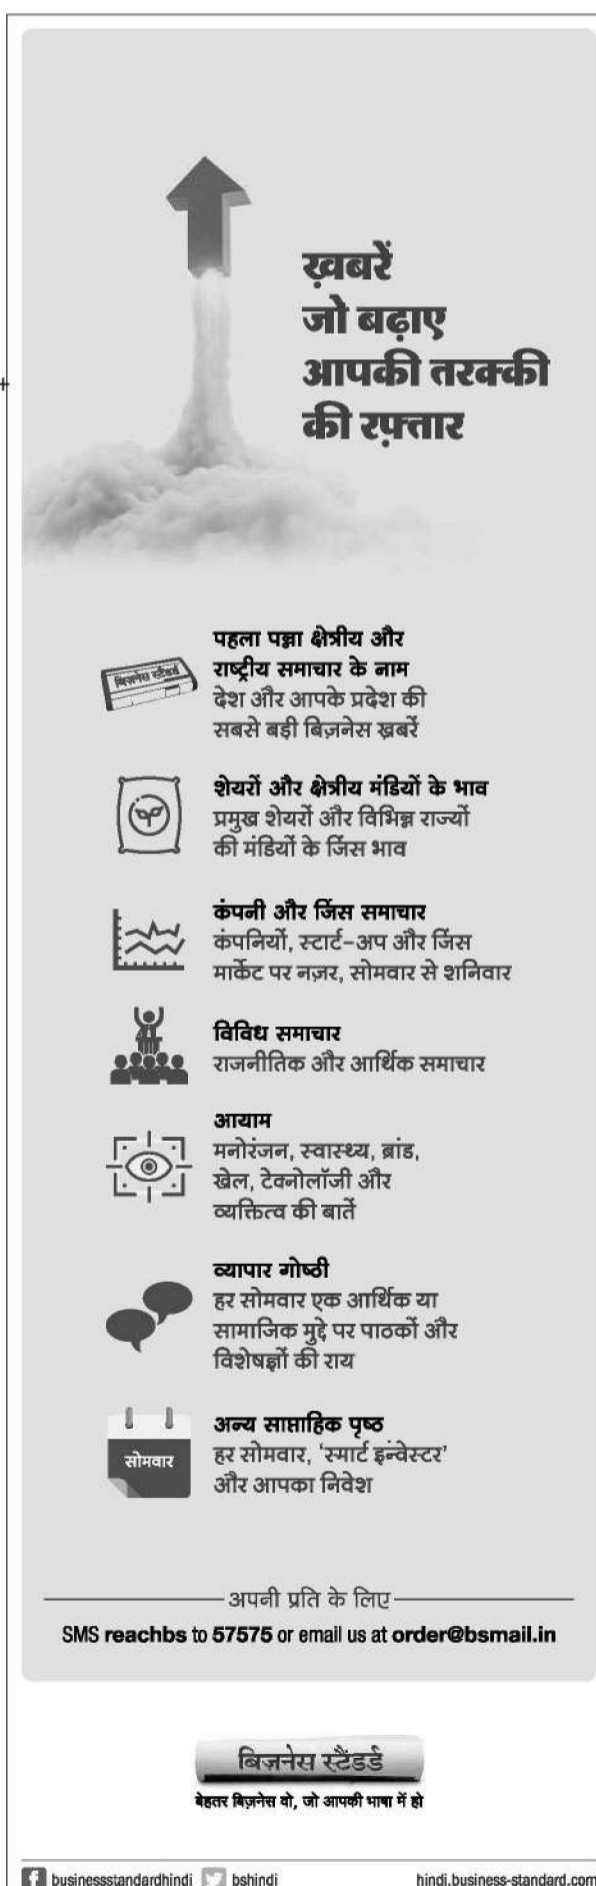 ख़बरें
जो बढ़ाए
आपकी तरक्की
की रफ़्तार
बिज़नेस स्टैंडर्ड
पहला पन्ना क्षेत्रीय और
राष्ट्रीय समाचार के नाम
देश और आपके प्रदेश की
सबसे बड़ी बिज़नेस ख़बरें
शेयरों और क्षेत्रीय मंडियों के भाव
प्रमुख शेयरों और विभिन्न राज्यों
की मंडियों के जिंस भाव
कंपनी और जिंस समाचार
कंपनियों, स्टार्ट-अप और जिंस
मार्केट पर नज़र, सोमवार से शनिवार
विविध समाचार
राजनीतिक और आर्थिक समाचार
आयाम
मनोरंजन, स्वास्थ्य, ब्रांड,
खेल, टेक्नोलॉजी और
व्यक्तित्व की बातें
व्यापार गोष्ठी
हर सोमवार एक आर्थिक या
सामाजिक मुद्दे पर पाठकों और
विशेषज्ञों की राय
सोमवार
अन्य साप्ताहिक पृष्ठ
हर सोमवार, ‘स्मार्ट इन्वेस्टर’
और आपका निवेश
अपनी प्रति के लिए
SMS reachbs to 57575 or email us at order@bsmail.in
बिज़नेस स्टैंडर्ड
बेहतर बिज़नेस वो, जो आपकी भाषा में हो
businessstandardhindi bshindi hindi.business-standard.com